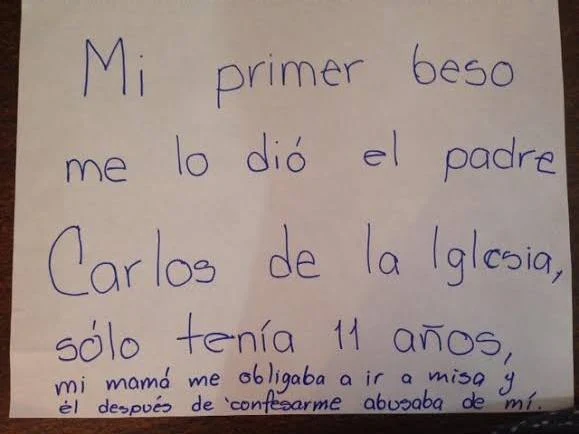 Mi primer beso
me lo dió el padre
Carlos de la Iglesia,
sólo tenía 11 años,
mi mamá me obligaba a ir a misa y
él después de confesarme abusaba de mí.